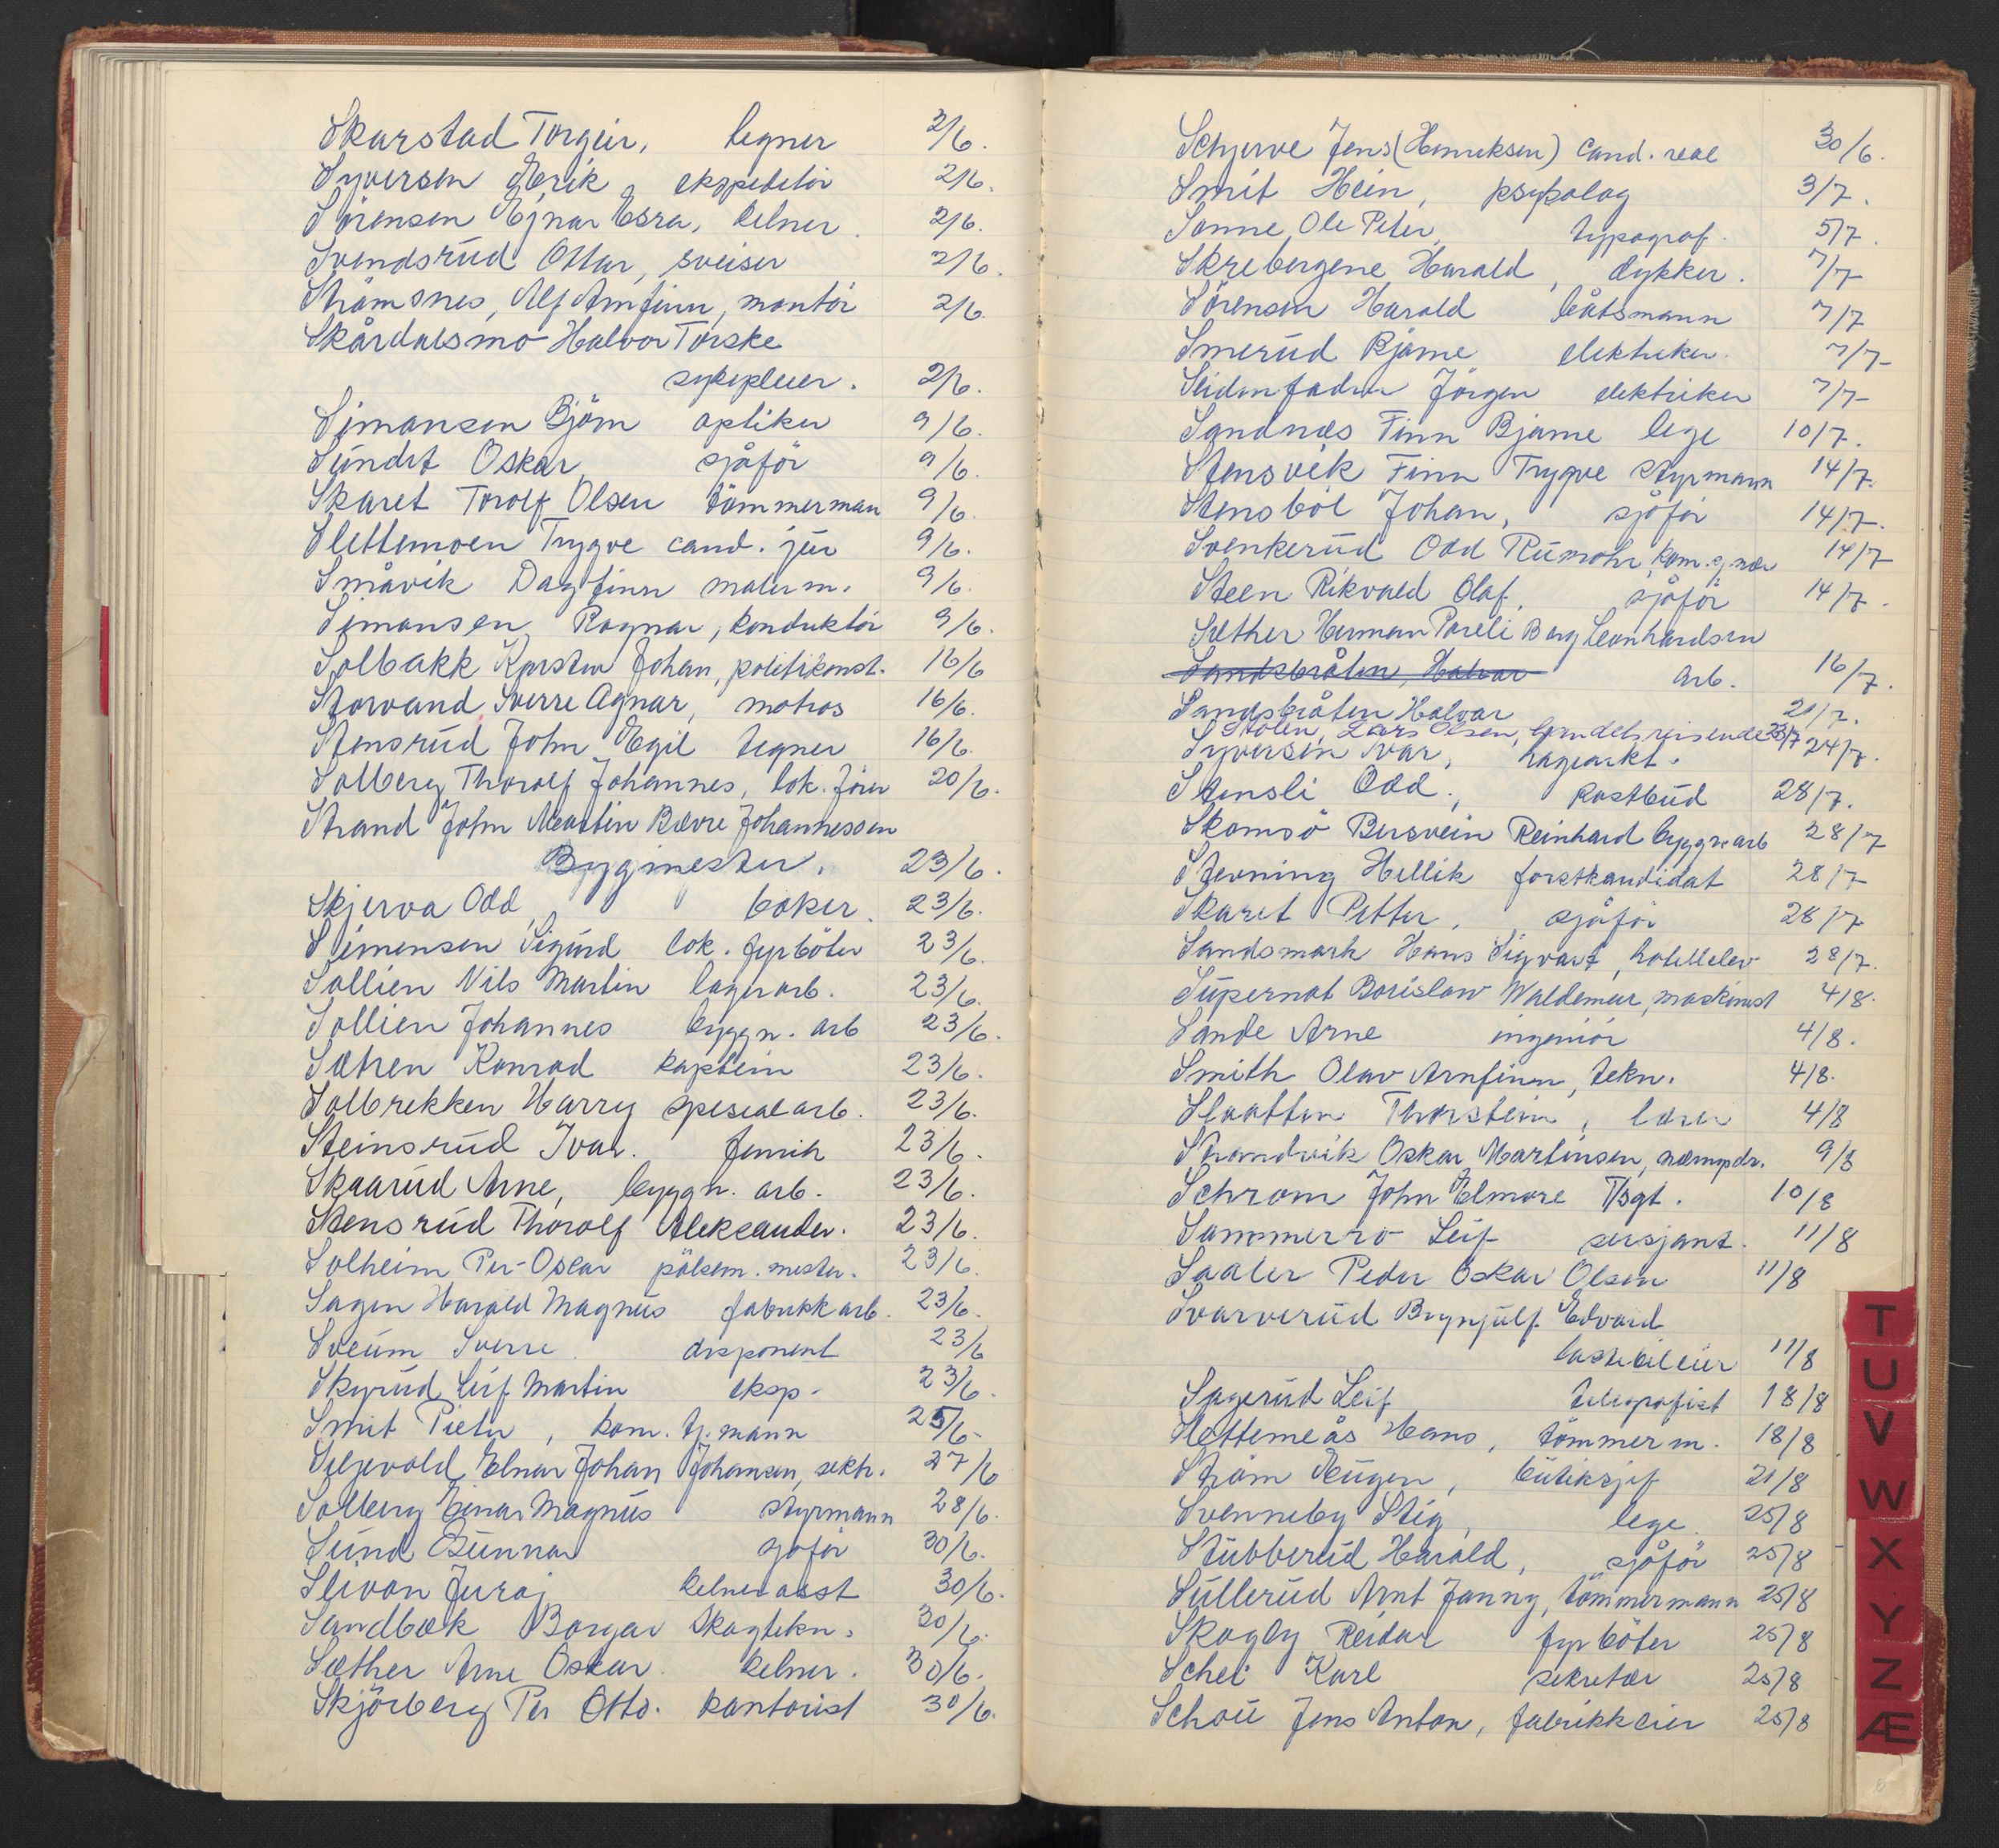 Skarstad Torgeir, tegner 2/6.
Syversen Erik, ekspeditör 2/6.
Sörensen Ejnar Esra, kelner. 2/6.
Svendsrud Ottar, sveiser 2/6.
Strömsnes, Alf Arnfinn, montör 2/6.
Skårdalsmo Halvor Torske
sykepleier. 2/6.
Simonsen Björn optiker 9/6.
Sundet Oskar, sjåför 9/6.
Skaret Torolf Olsen tömmerman 9/6.
Slettemoen Trygve cand. jur 9/6.
Småvik Dagfinn malerm. 9/6.
Simonsen Ragnar, konduktör 9/6.
Solbakk Karsten Johan, politikonst. 16/6
Storvand Sverre Agnar, matros 16/6.
Stensrud John Egil tegner 16/6.
Solberg Thorolf Johannes, lok. förer 20/6.
Strand John Martin Bævre Johannessen
Byggmester. 23/6.
Skjerva Odd, baker. 23/6.
Simensen Sigurd lok. fyrböter 23/6.
Sollien Nils Martin lagerarb. 23/6.
Sollien Johannes byggn. arb 23/6.
Sætren Konrad kaptein 23/6.
Solbrekken Harry spesialarb. 23/6.
Steinsrud Ivar. fenrik 23/6.
Skaarud Arne, byggn. arb. 23/6.
Stensrud Thorolf Aleksander. 23/6.
Solheim Per-Oskar pölsem. mester. 23/6.
Sagen Harald Magnus fabrikkarb. 23/6.
Sveum Sverre. disponent 23/6
Skyrud Leif Martin eksp. 23/6.
Smit Pieter, kom. tj. mann 25/6.
Siljevold Elnar Johan Johansen, sekr. 27/6
Solberg Einar Magnus styrmann 28/6.
Sund Gunnar sjåför 30/6.
Slivon Juraj kelnerasst 30/6.
Sandbæk Borgar Skogtekn. 30/6.
Sæther Arne Oskar. kelner. 30/6.
Skjörberg Per Otto. kontorist 30/6.
Schjerve Jens (Henriksen) cand. real 30/6.
Smit Hein, psykolog 3/7.
Sonne, Ole Peter, typograf. 5/7.
Skrebergene Harald, dykker. 7/7
Sörensen Harald båtsmann 7/7
Smerud Bjarne elektriker. 7/7
Seidenfaden Jörgen elektriker 7/7
Sandnæs Finn Bjarne lege 10/7.
Stensvik Finn Trygve styrmann 14/7.
Stensböl Johan, sjåför 14/7.
Svenkerud Odd Rumohr, kom.g. 14/7
Steen Rikvald Olaf, sjåför 14/7.
Sæther Herman Pareli Berg Leonhardsen
Sandsbråten, Halvar arb. 16/7.
Sandsbråten Halvar 21/7.
Stölen, Lars Olsen, handelsreisende 23/7
Syversen Ivar, hagearkt. 24/7.
Stensli Odd., postbud 28/7.
Skomsö Bersvein Reinhard byggn.arb 28/7
Stevning Hellik forstkandidat 28/7
Skaret Petter, sjåför 28/7
Sandsmark Hans Sigvart, hotellelev 28/7.
Supernat Borislaw Waldemar, maskinist 4/8.
Sande Arne ingeniör 4/8.
Smith Olav Arnfinn, tekn. 4/8.
Slaatten Thorstein, lærer 4/8
Strandvik Oskar Martinsen, 9/8
Schrom John Elmore T/sgt. 10/8
Sommerro Leif sersjant. 11/8
Saaler Peder Oskar Olsen 11/8
Svarverud Brynjulf Edvard
lastebileier 11/8
Sagerud Leif telegrafist 18/8
Slettemeås Hans, tömmerm. 18/8
Ström Eugen, butiksjef 21/8
Svenneby Stig, lege. 25/8
Stubberud Harald, sjåför 25/8
Sullerud Arnt Janny, tömmermann 25/8
Skogly Reidar fyrböter 25/8
Schei Karl sekretær 25/8
Schou Jens Anton, fabrikkeier 25/8
T
U
V
W
X
Y
Z
Æ